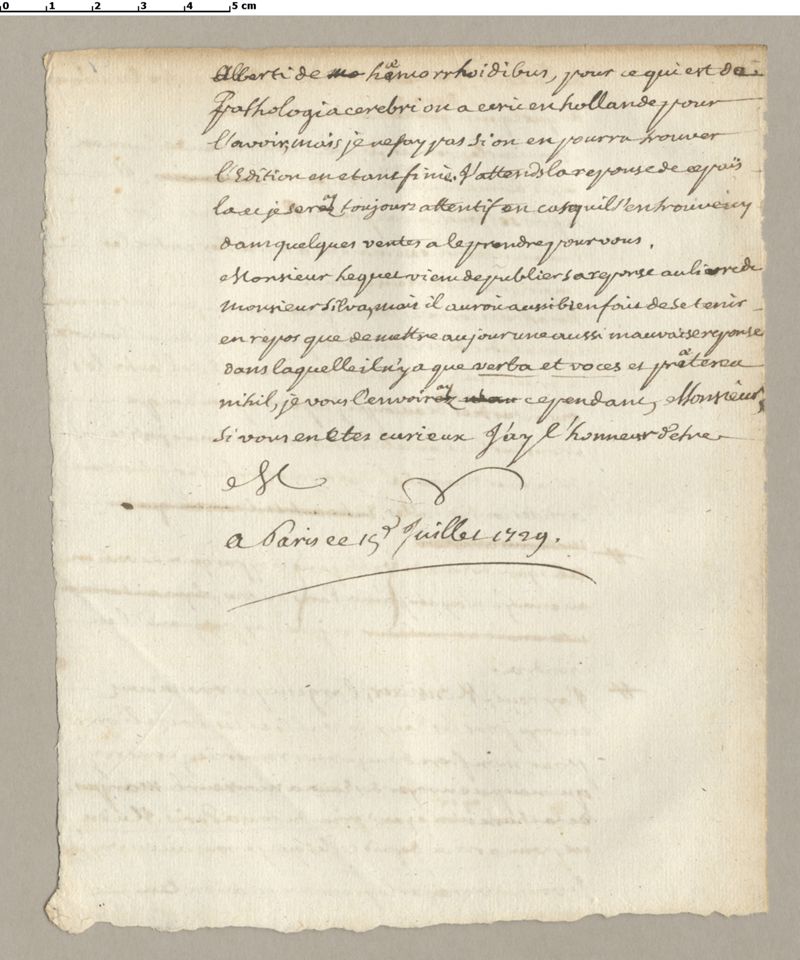 0 1 2 3 4 5 cm
Alberti de hæmorrhoidibus, pour ce qui est de
Pathologia cerebri on a ecrit en hollande pour
l'avoir, mais je ne say pas si on en pourra trouver
l'Edition en etant finie. J'attends la reponse de ce païs
la et je seray toujours attentif en cas qu'il s'en trouve icy
dans quelques ventes a le prendre pour vous.
Monsieur hequet vient de publier sa reponse au livre de
Monsieur Silva, mais il auroit aussi bien fait de se tenir
en repos que de mettre au jour une aussi mauvaise reponse
dans laquelle il n'y a que verba et voces et præterea
nihil, je vous l'envoiray cependant, Monsieur,
si vous en etes curieux J'ay l'honneur d'etre
M
a Paris ce 15e Juillet 1729.